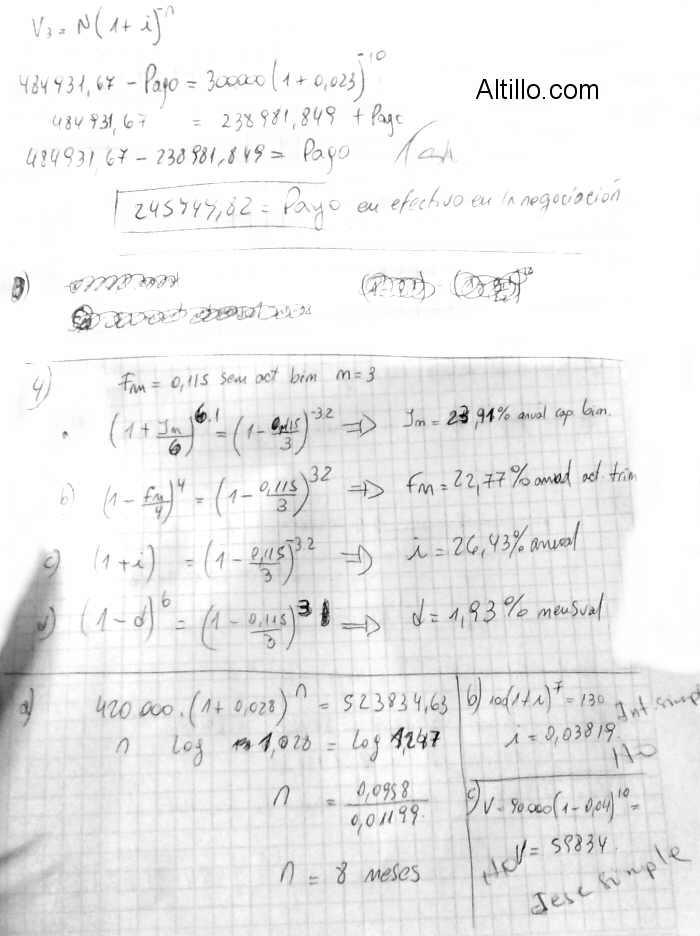 V₃ = N(1 + i)⁻ⁿ
484931,67 - Pago = 300000(1 + 0,023)⁻¹⁰
Altillo.com
484931,67 = 238981,849 + Pago
484931,67 - 238981,849 = Pago
245949,82 = Pago en efectivo en la negociación
3)
4) Fm = 0,115 sem act bim m = 3
(1 + Jm/6)⁶·¹ = (1 - 0,115/3)⁻³² ⟹ Jm = 23,91% anual cap bim.
b) (1 - fm/4)⁴ = (1 - 0,115/3)³² ⟹ Fm = 22,77% anual act. trim
c) (1 + i) = (1 - 0,115/3)⁻³² ⟹ i = 26,43% anual
d) (1 - d)⁶ = (1 - 0,115/3)³ ⟹ d = 1,93% mensual
a) 420 000.(1 + 0,028)ⁿ = 523834,63
n log 1,028 = log 1,247
n = 0,0958/0,01199
n = 8 meses
b) 100(1 + i)⁷ = 130
i = 0,03819
Int. simple
No
c) V = 90000(1 - 0,04)¹⁰ =
V = 59834.
No
Desc simple